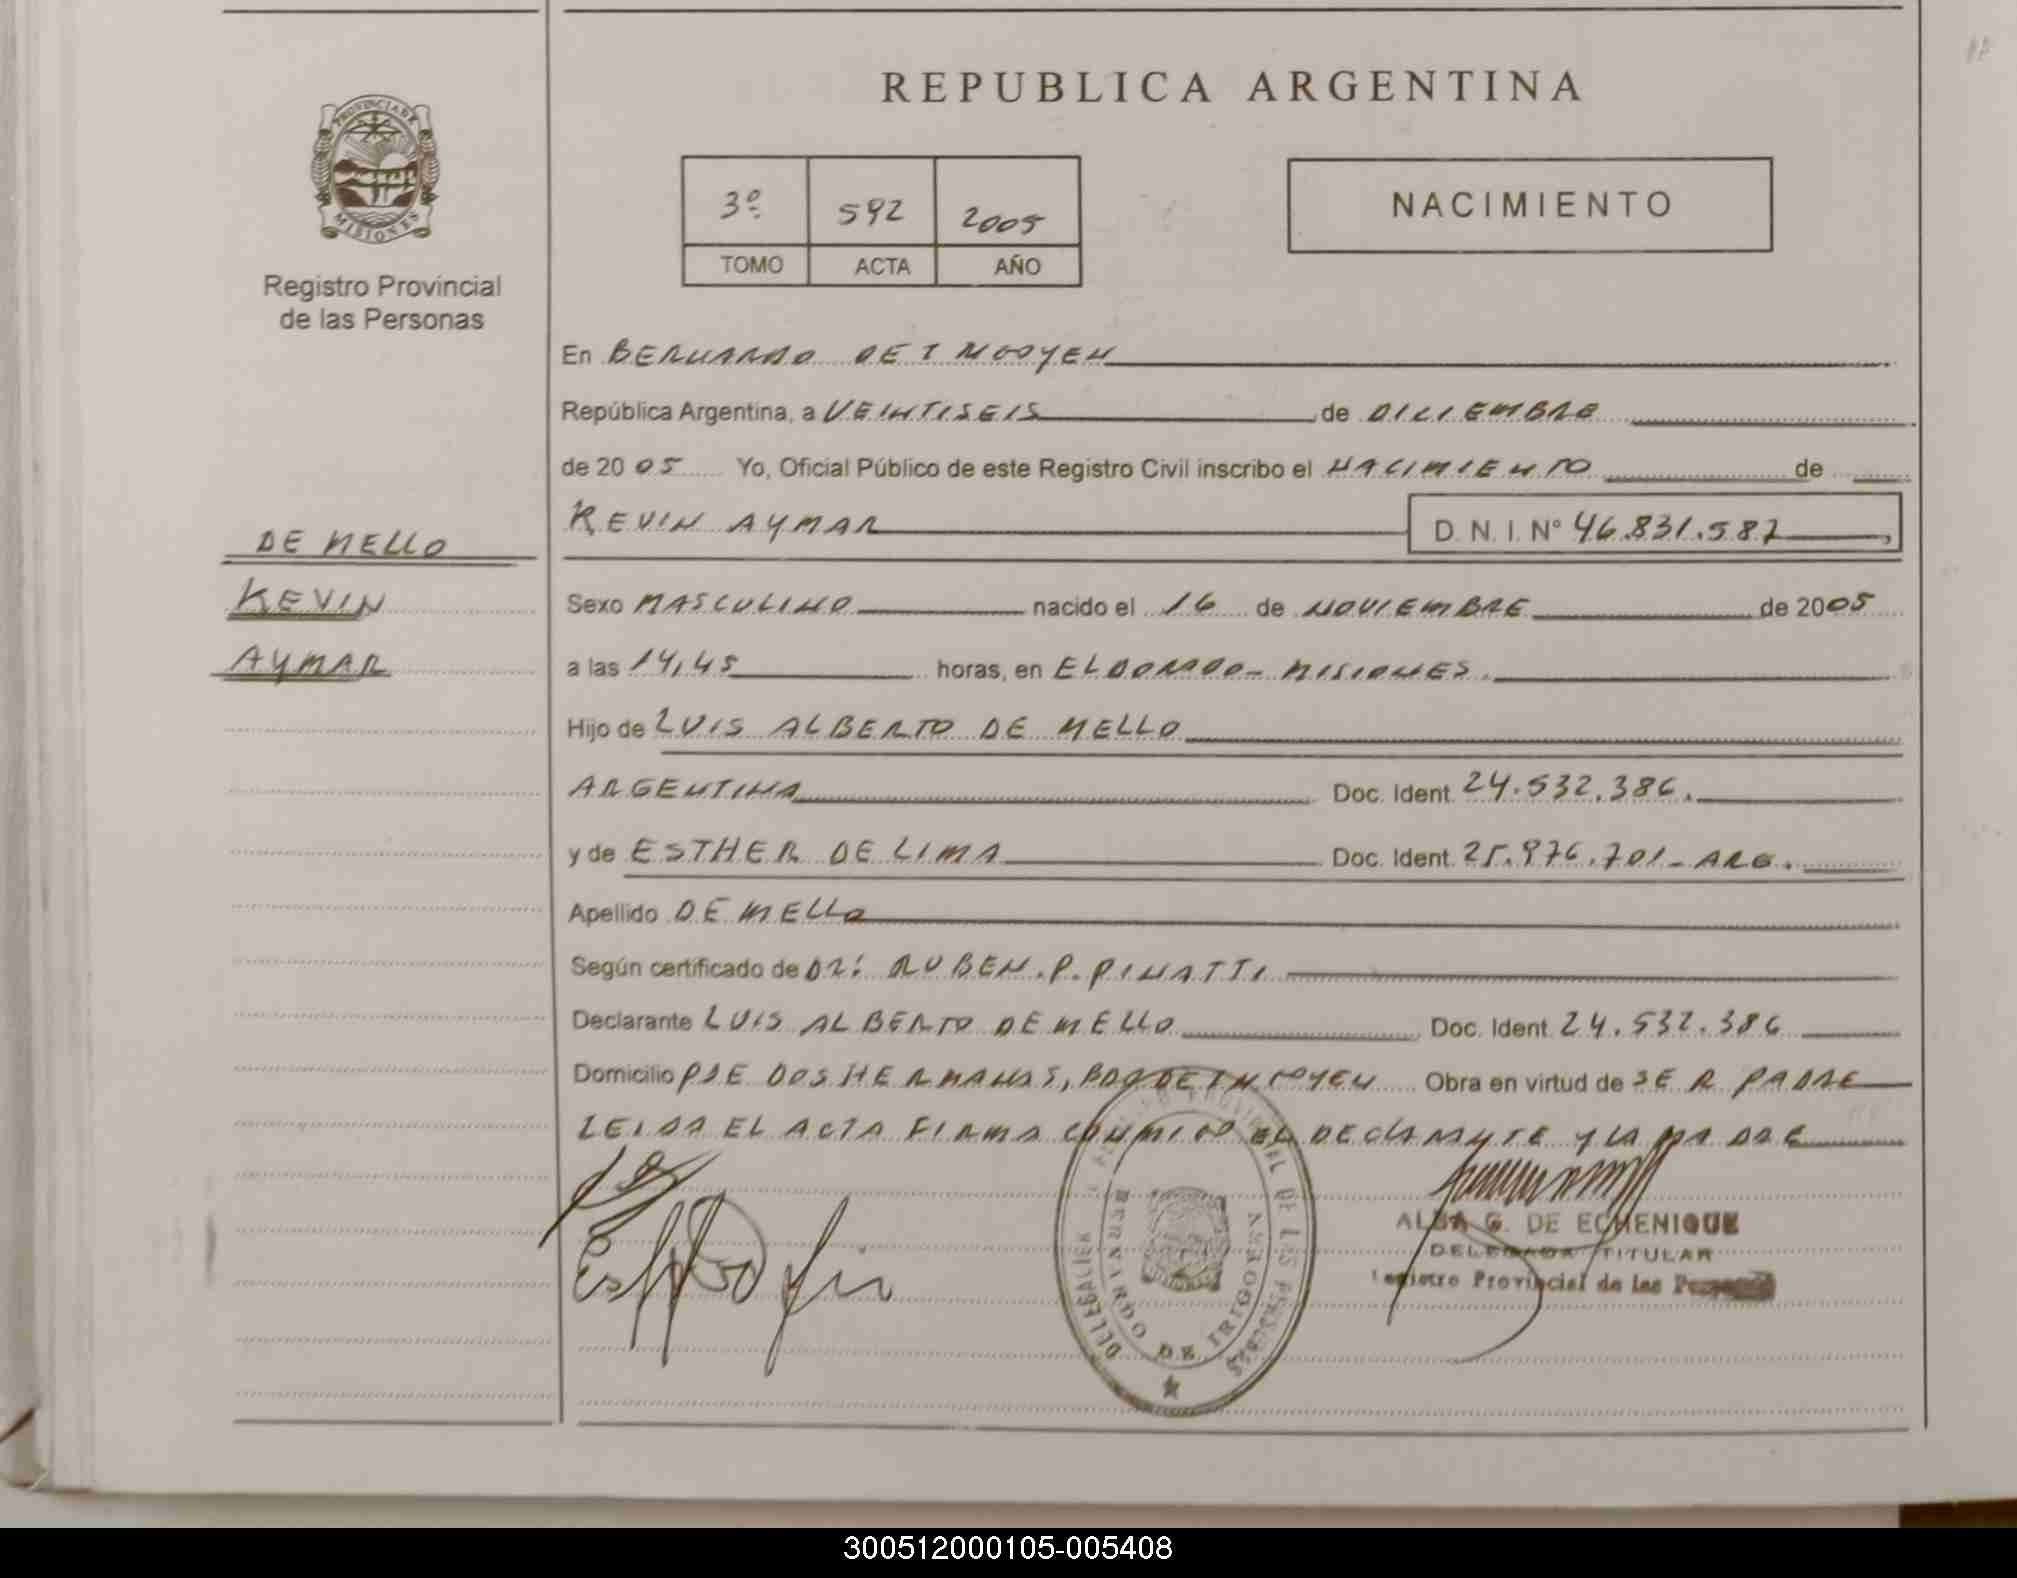 REPUBLICA ARGENTINA
PROVINCIA DE
MISIONES
Registro Provincial
de las Personas
3º 592 2005
TOMO ACTA AÑO
NACIMIENTO
En BERNARDO DE IRIGOYEN
República Argentina, a VEINTISEIS de DICIEMBRE
de 2005 Yo, Oficial Público de este Registro Civil inscribo el NACIMIENTO de
KEVIN AYMAR D. N. I. Nº 46.831.587
DE MELLO
KEVIN
AYMAR
Sexo MASCULINO nacido el 16 de NOVIEMBRE de 2005
a las 14,45 horas, en ELDORADO- MISIONES.
Hijo de LUIS ALBERTO DE MELLO
ARGENTINA Doc. Ident. 24.532.386.
y de ESTHER DE LIMA Doc. Ident. 25.976.701- ARG.
Apellido DE MELLO
Según certificado de DR: RUBEN.P.PINATTI
Declarante LUIS ALBERTO DE MELLO Doc. Ident. 24.532.386
Domicilio PJE DOS HERMANAS, BDO DE IRIGOYEN Obra en virtud de SER PADRE
LEIDA EL ACTA FIRMA CONMIGO EL DECLARANTE Y LA MADRE
DELEGACION
BERNARDO DE IRIGOYEN
PROVINCIAL DE LAS PERSONAS
ALBA G. DE ECHENIQUE
DELEGADA TITULAR
Registro Provincial de las
300512000105-005408